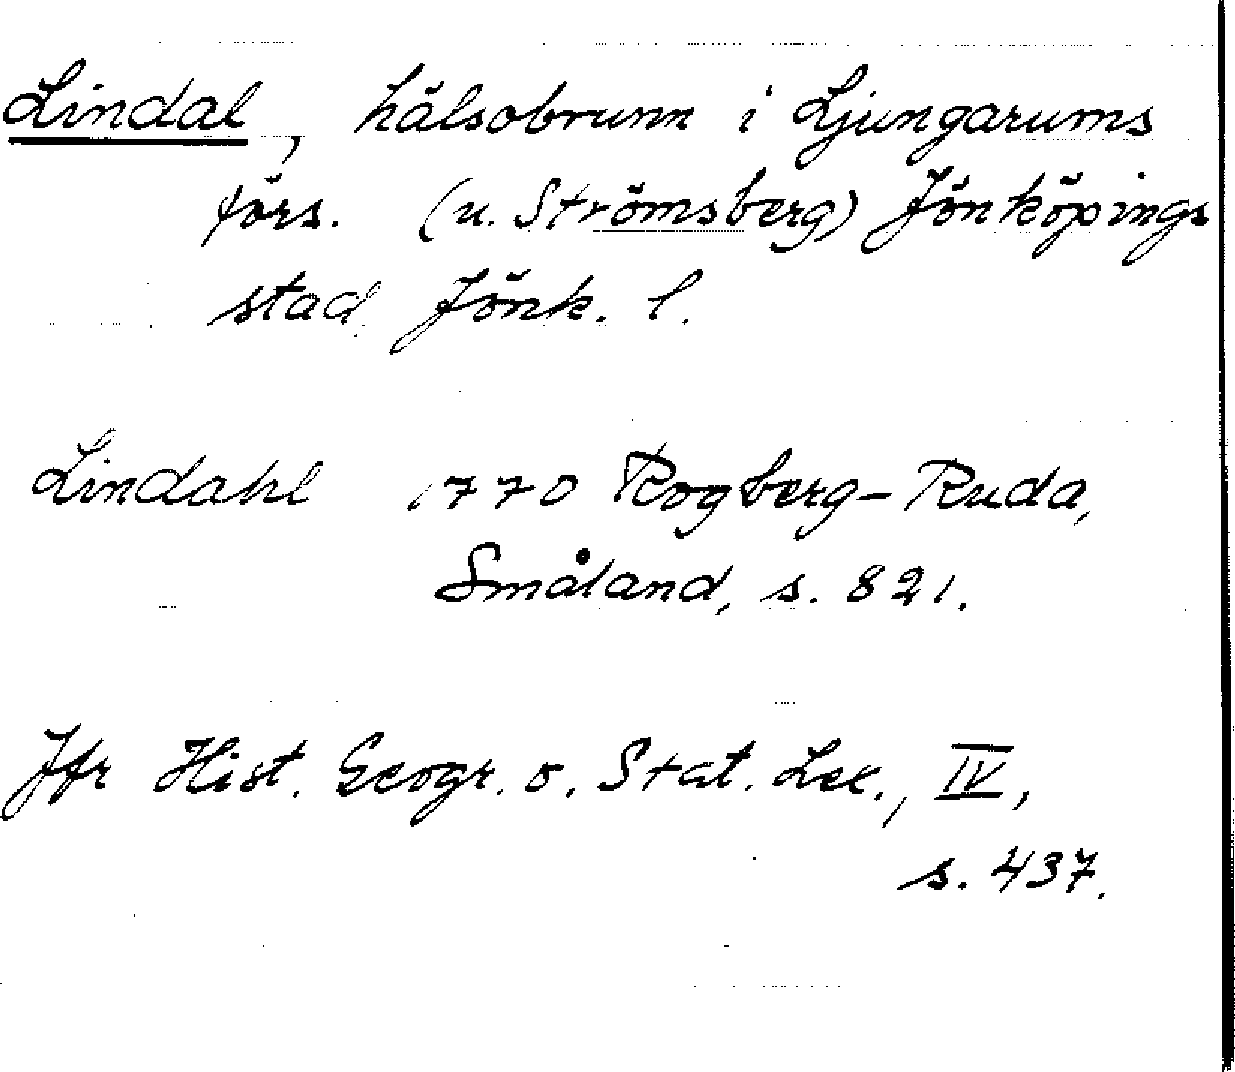 Lindal, hälsobrunn i Ljungarums
förs. (u. Strömsberg) Jönköpings
stad, Jönk. l.
Lindahl 1770 Rogberg-Ruda,
Småland, s. 821.
Jfr Hist. Geogr. o. Stat. Lex., IV,
s. 437.